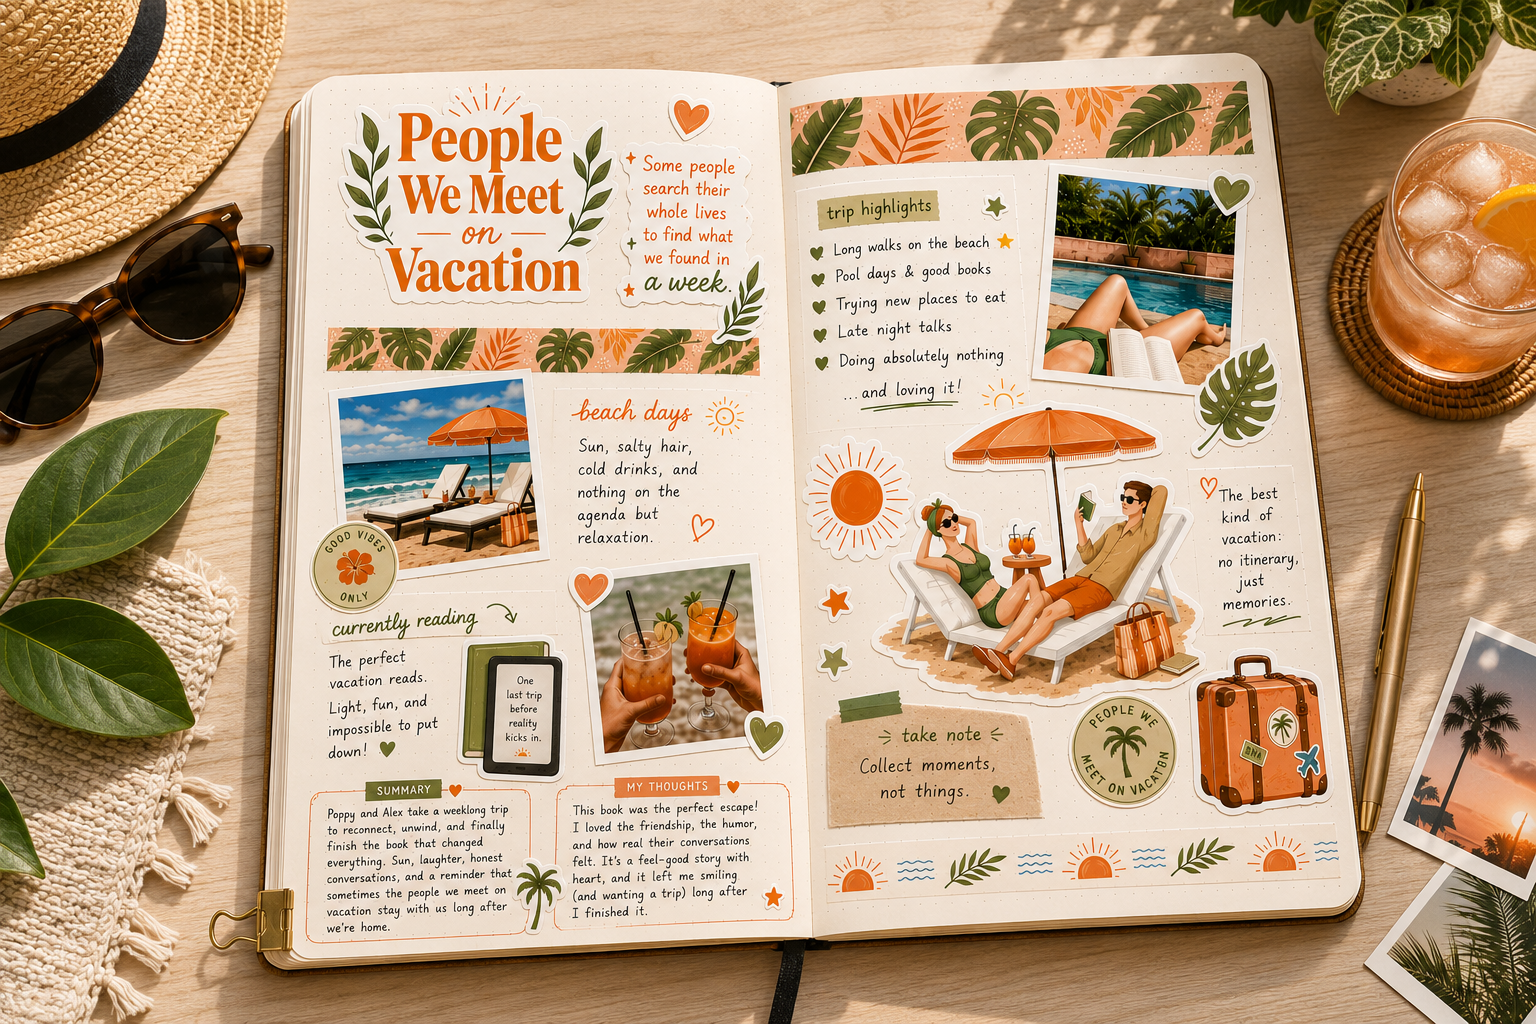 People
We Meet
on
Vacation
Some people
search their
whole lives
to find what
we found in
a week.
beach days
Sun, salty hair,
cold drinks, and
nothing on the
agenda but
relaxation.
GOOD VIBES
ONLY
currently reading
The perfect
vacation reads.
Light, fun, and
impossible to put
down!
One
last trip
before
reality
kicks in.
SUMMARY
Poppy and Alex take a weeklong trip
to reconnect, unwind, and finally
finish the book that changed
everything. Sun, laughter, honest
conversations, and a reminder that
sometimes the people we meet on
vacation stay with us long after
we're home.
MY THOUGHTS
This book was the perfect escape!
I loved the friendship, the humor,
and how real their conversations
felt. It's a feel-good story with
heart, and it left me smiling
(and wanting a trip) long after
I finished it.
trip highlights
Long walks on the beach
Pool days & good books
Trying new places to eat
Late night talks
Doing absolutely nothing
...and loving it!
The best
kind of
vacation:
no itinerary,
just
memories.
take note
Collect moments,
not things.
PEOPLE WE
MEET ON VACATION